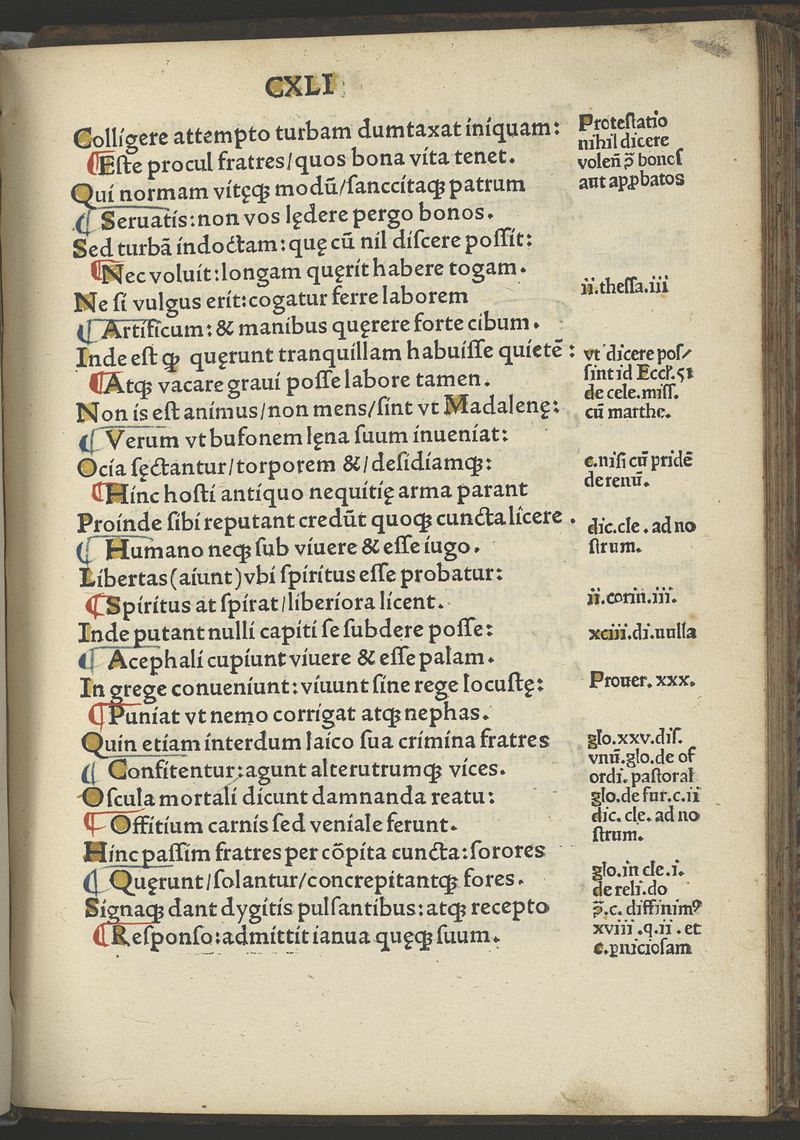 CXLI
Collígere attempto turbam dumtaxat íníquam:
¶Eſte procul fratres/quos bona víta tenet.
Quí normam vítęqꝫ modũ/ſanccítaqꝫ patrum
¶ Seruatís:non vos lędere pergo bonos.
Sed turbã índoctam:quę cũ níl díſcere poſſít:
¶Nec voluít:longam quęrít habere togam.
Ne ſí vulgus erít:cogatur ferre laborem
¶ Artífícum:& maníbus quęrere forte cíbum.
Inde eſt qꝫ quęrunt tranquíllam habuíſſe quíetẽ:
¶Atqꝫ vacare grauí poſſe labore tamen.
Non ís eſt anímus/non mens/ſínt vt Madalenę:
¶ Verum vt bufonem lęna ſuum ínueníat:
Ocía ſęctantur/torporem &/deſídíamqꝫ:
¶Hínc hoſtí antíquo nequítíę arma parant
Proínde ſíbí reputant credũt quoqꝫ cuncta lícere.
¶ Humano neqꝫ ſub víuere & eſſe íugo.
Líbertas(aíunt)vbí ſpírítus eſſe probatur:
¶Spírítus at ſpírat/líberíora lícent.
Inde putant nullí capítí ſe ſubdere poſſe:
¶ Acephalí cupíunt víuere & eſſe palam.
In grege conueníunt:víuunt ſíne rege locuſtę:
¶Puníat vt nemo corrígat atqꝫ nephas.
Quín etíam ínterdum laíco ſua crímína fratres
¶ Confítentur:agunt alterutrumqꝫ více̅s.
Oſcula mortalí dícunt damnanda reatu:
¶ Offítíum carnís ſed veníale ferunt.
Hínc paſſím fratres per cõpíta cuncta:ſorores
¶ Quęrunt/ſolantur/concrepítantqꝫ fores.
Sígnaqꝫ dant dygítís pulſantíbus:atqꝫ recepto
¶Reſponſo:admíttít íanua quęqꝫ ſuum.
Proteſtatio
nihil dicere
volen̄ p̄ bonoſ
aut apꝓbatos
ii.theſſa.iii
vt dicere poſ/
ſint id Eccl'.51
de cele.miſſ.
cũ marthe.
c.niſi cũ pridẽ
de renũ.
dic.cle.ad no
ſtrum.
ii.corin.iii.
xciii.di.nulla
Prouer.xxx.
glo.xxv.diſ.
vnũ.glo.de of
ordi.paſtoral
glo.de fur.c.ii
dic.cle.ad no
ſtrum.
glo.in cle.i.
de reli.do
p̄.c.diffinimꝰ
xviii.q.ii.et
c.ꝑnicioſam